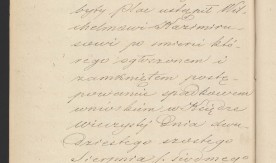 był Plac ustąpił Wil-
chelmowi Kazimiro-
wi po imieniu któ-
rego ogłoszonem i
zamkniętem postę-
powaniu spadkowem
wnioskiem w Księdze
wieczystej Dnia dwu-
dziestego szóstego
Sierpnia (: siódmego